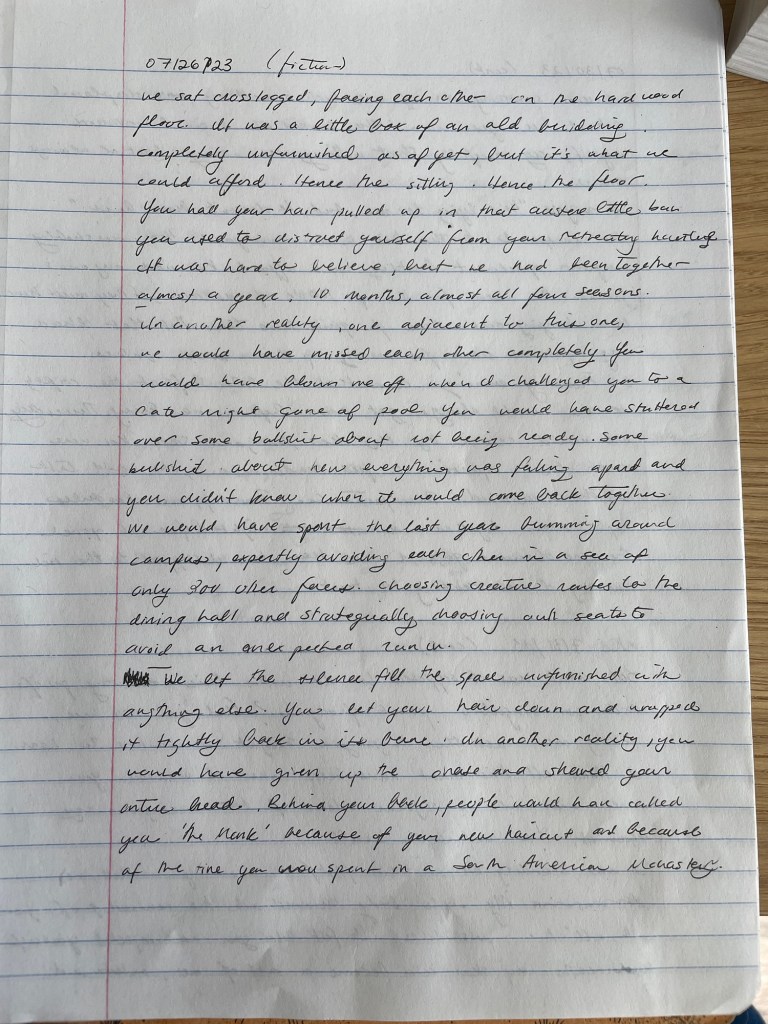 07/26/23 (fiction)
we sat crosslegged, facing each other on the hardwood
floor. It was a little box of an old building.
completely unfurnished as of yet, but it's what we
could afford. Hence the sitting. Hence the floor.
You had your hair pulled up in that austere little bun
you used to distract yourself from your retreating hairline
It was hard to believe, but we had been together
almost a year, 10 months, almost all four seasons.
In another reality, one adjacent to this one,
we would have missed each other completely. You
would have blown me off when I challenged you to a
late night game of pool. You would have stuttered
over some bullshit about not being ready. Some
bullshit about how everything was falling apart and
you didn't know when it would come back together.
We would have spent the last year bumming around
campus, expertly avoiding each other in a sea of
only 300 other faces. choosing creative routes to the
dining hall and strategically choosing our seats to
avoid an unexpected run in.
We let the silence fill the space unfurnished with
anything else. You let your hair down and wrapped
it tightly back in its bun. In another reality, you
would have given up the and shaved your
entire head. Behind your back, people would have called
you 'the Monk' because of your new haircut and because
of the time you spent in a South American Monastery.